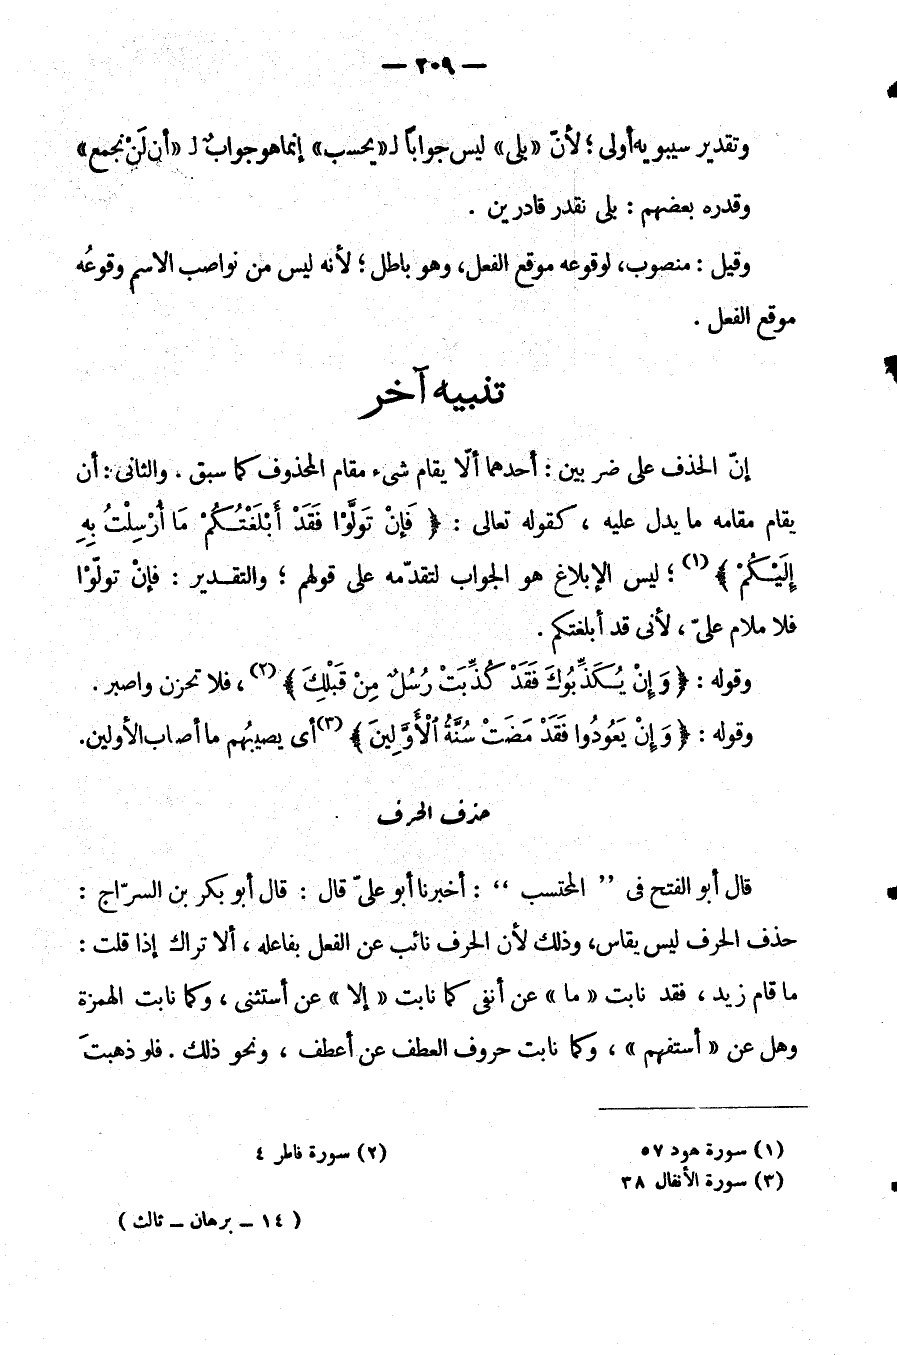 — ٢٠٩ —
وتقدير سيبويه أولى ؛ لأنّ «بلى» ليس جواباً لـ«يحسب» إنما هو جوابٌ لـ «أن لَنْ نجمع»
وقدره بعضهم : بلى نقدر قادرين .
وقيل : منصوب، لوقوعه موقع الفعل، وهو باطل ؛ لأنه ليس من نواصب الاسم وقوعُه
موقع الفعل .
تنبيه آخر
إنّ الحذف على ضربين : أحدهما ألّا يقام شىء مقام المحذوف كما سبق . والثانى : أن
يقام مقامه ما يدل عليه ، كقوله تعالى : ﴿ فَإِنْ تَوَلَّوْا فَقَدْ أَبْلَغْتُكُمْ مَا أُرْسِلْتُ بِهِ
إِلَيْكُمْ ﴾ (١) ؛ ليس الإبلاغ هو الجواب لتقدّمه على قولهم ؛ والتقدير : فإنْ تولّوْا
فلا ملام علىّ ، لأنى قد أبلغتكم .
وقوله : ﴿ وَإِنْ يُكَذِّبُوكَ فَقَدْ كُذِّبَتْ رُسُلٌ مِنْ قَبْلِكَ ﴾ (٢) ، فلا تحزن واصبر .
وقوله : ﴿ وَإِنْ يَعُودُوا فَقَدْ مَضَتْ سُنَّةُ ٱلْأَوَّلِينَ ﴾ (٣) أى يصيبُهم ما أصاب الأولين.
حذف الحرف
قال أبو الفتح فى ” المحتسب “ : أخبرنا أبو علىّ قال : قال أبو بكر بن السرّاج :
حذف الحرف ليس يقاس، وذلك لأن الحرف نائب عن الفعل بفاعله ، ألا تراك إذا قلت :
ما قام زيد ، فقد نابت « ما » عن أنفى كما نابت « إلا » عن أستثنى ، وكما نابت الهمزة
وهل عن « أستفهم » ، وكما نابت حروف العطف عن أعطف ، ونحو ذلك . فلو ذهبتَ
(١) سورة هود ٥٧ (٢) سورة فاطر ٤
(٣) سورة الأنفال ٣٨
( ١٤ – برهان – ثالث )